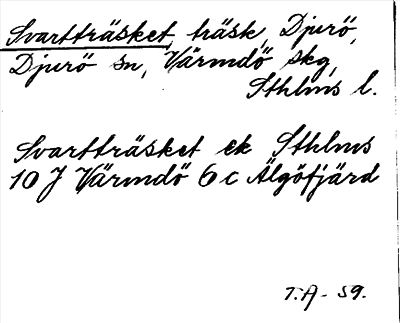 Svartträsket, träsk, Djurö,
Djurö sn, Värmdö skg,
Sthlms l.
Svartträsket ek Sthlms
10 J Värmdö 6 c Älgöfjärd
T.A. 59.